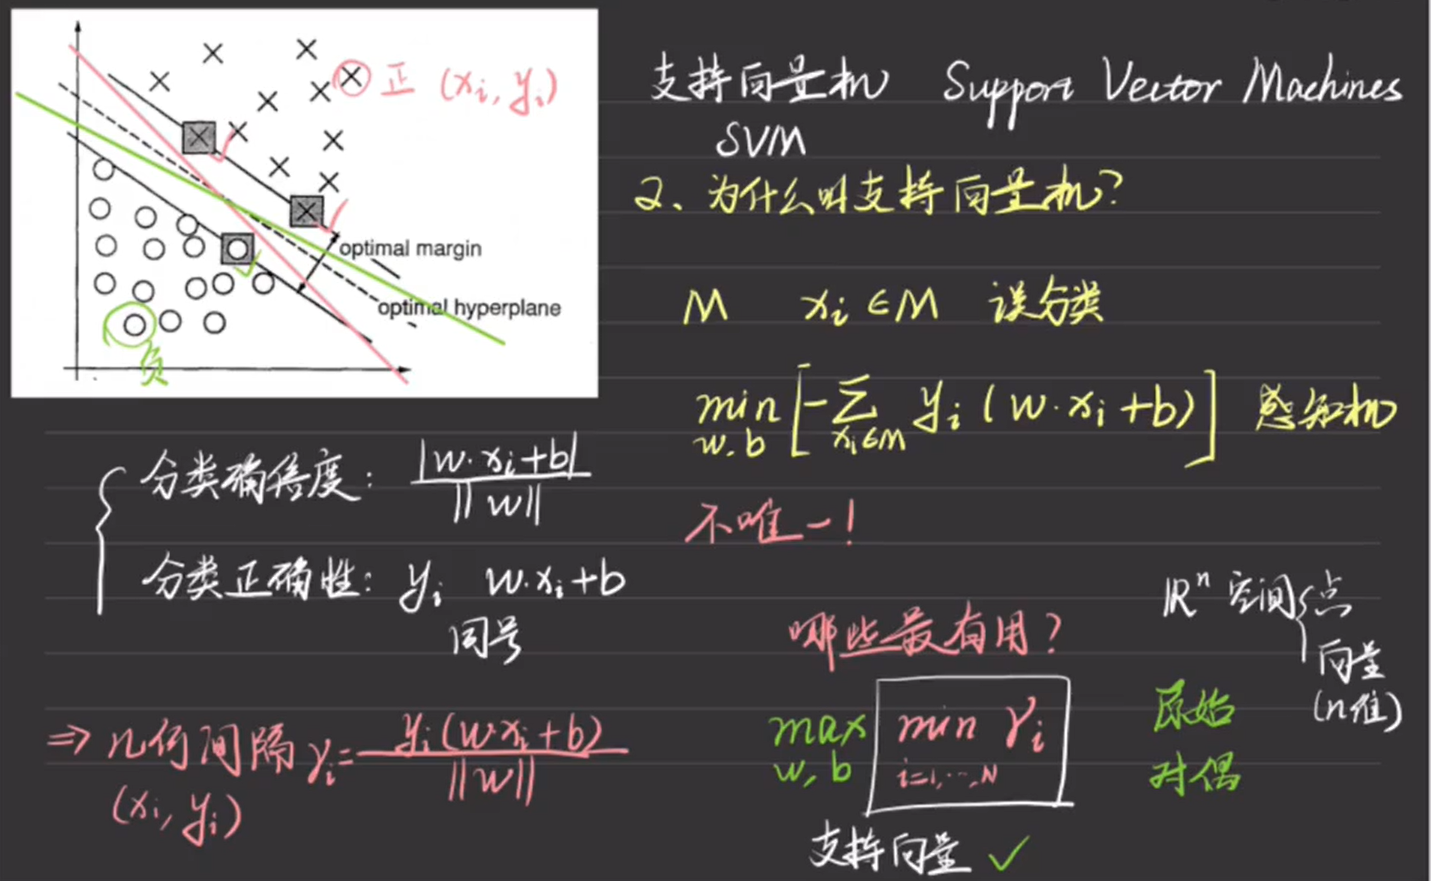 正 (xi, yi)
optimal margin
optimal hyperplane
负
支持向量机 Support Vector Machines
SVM
2、为什么叫支持向量机?
M xi∈M 误分类
min [-∑ yi(w·xi+b)] 感知机
w.b xi∈M
不唯一!
分类确信度: |w·xi+b|
||w||
分类正确性: yi w·xi+b
同号
⇒几何间隔 γi= yi(w·xi+b)
||w||
(xi, yi)
哪些最有用?
max min γi
w,b i=1,…,N
支持向量 ✓
ℝⁿ空间{点
向量
(n维)
原始
对偶